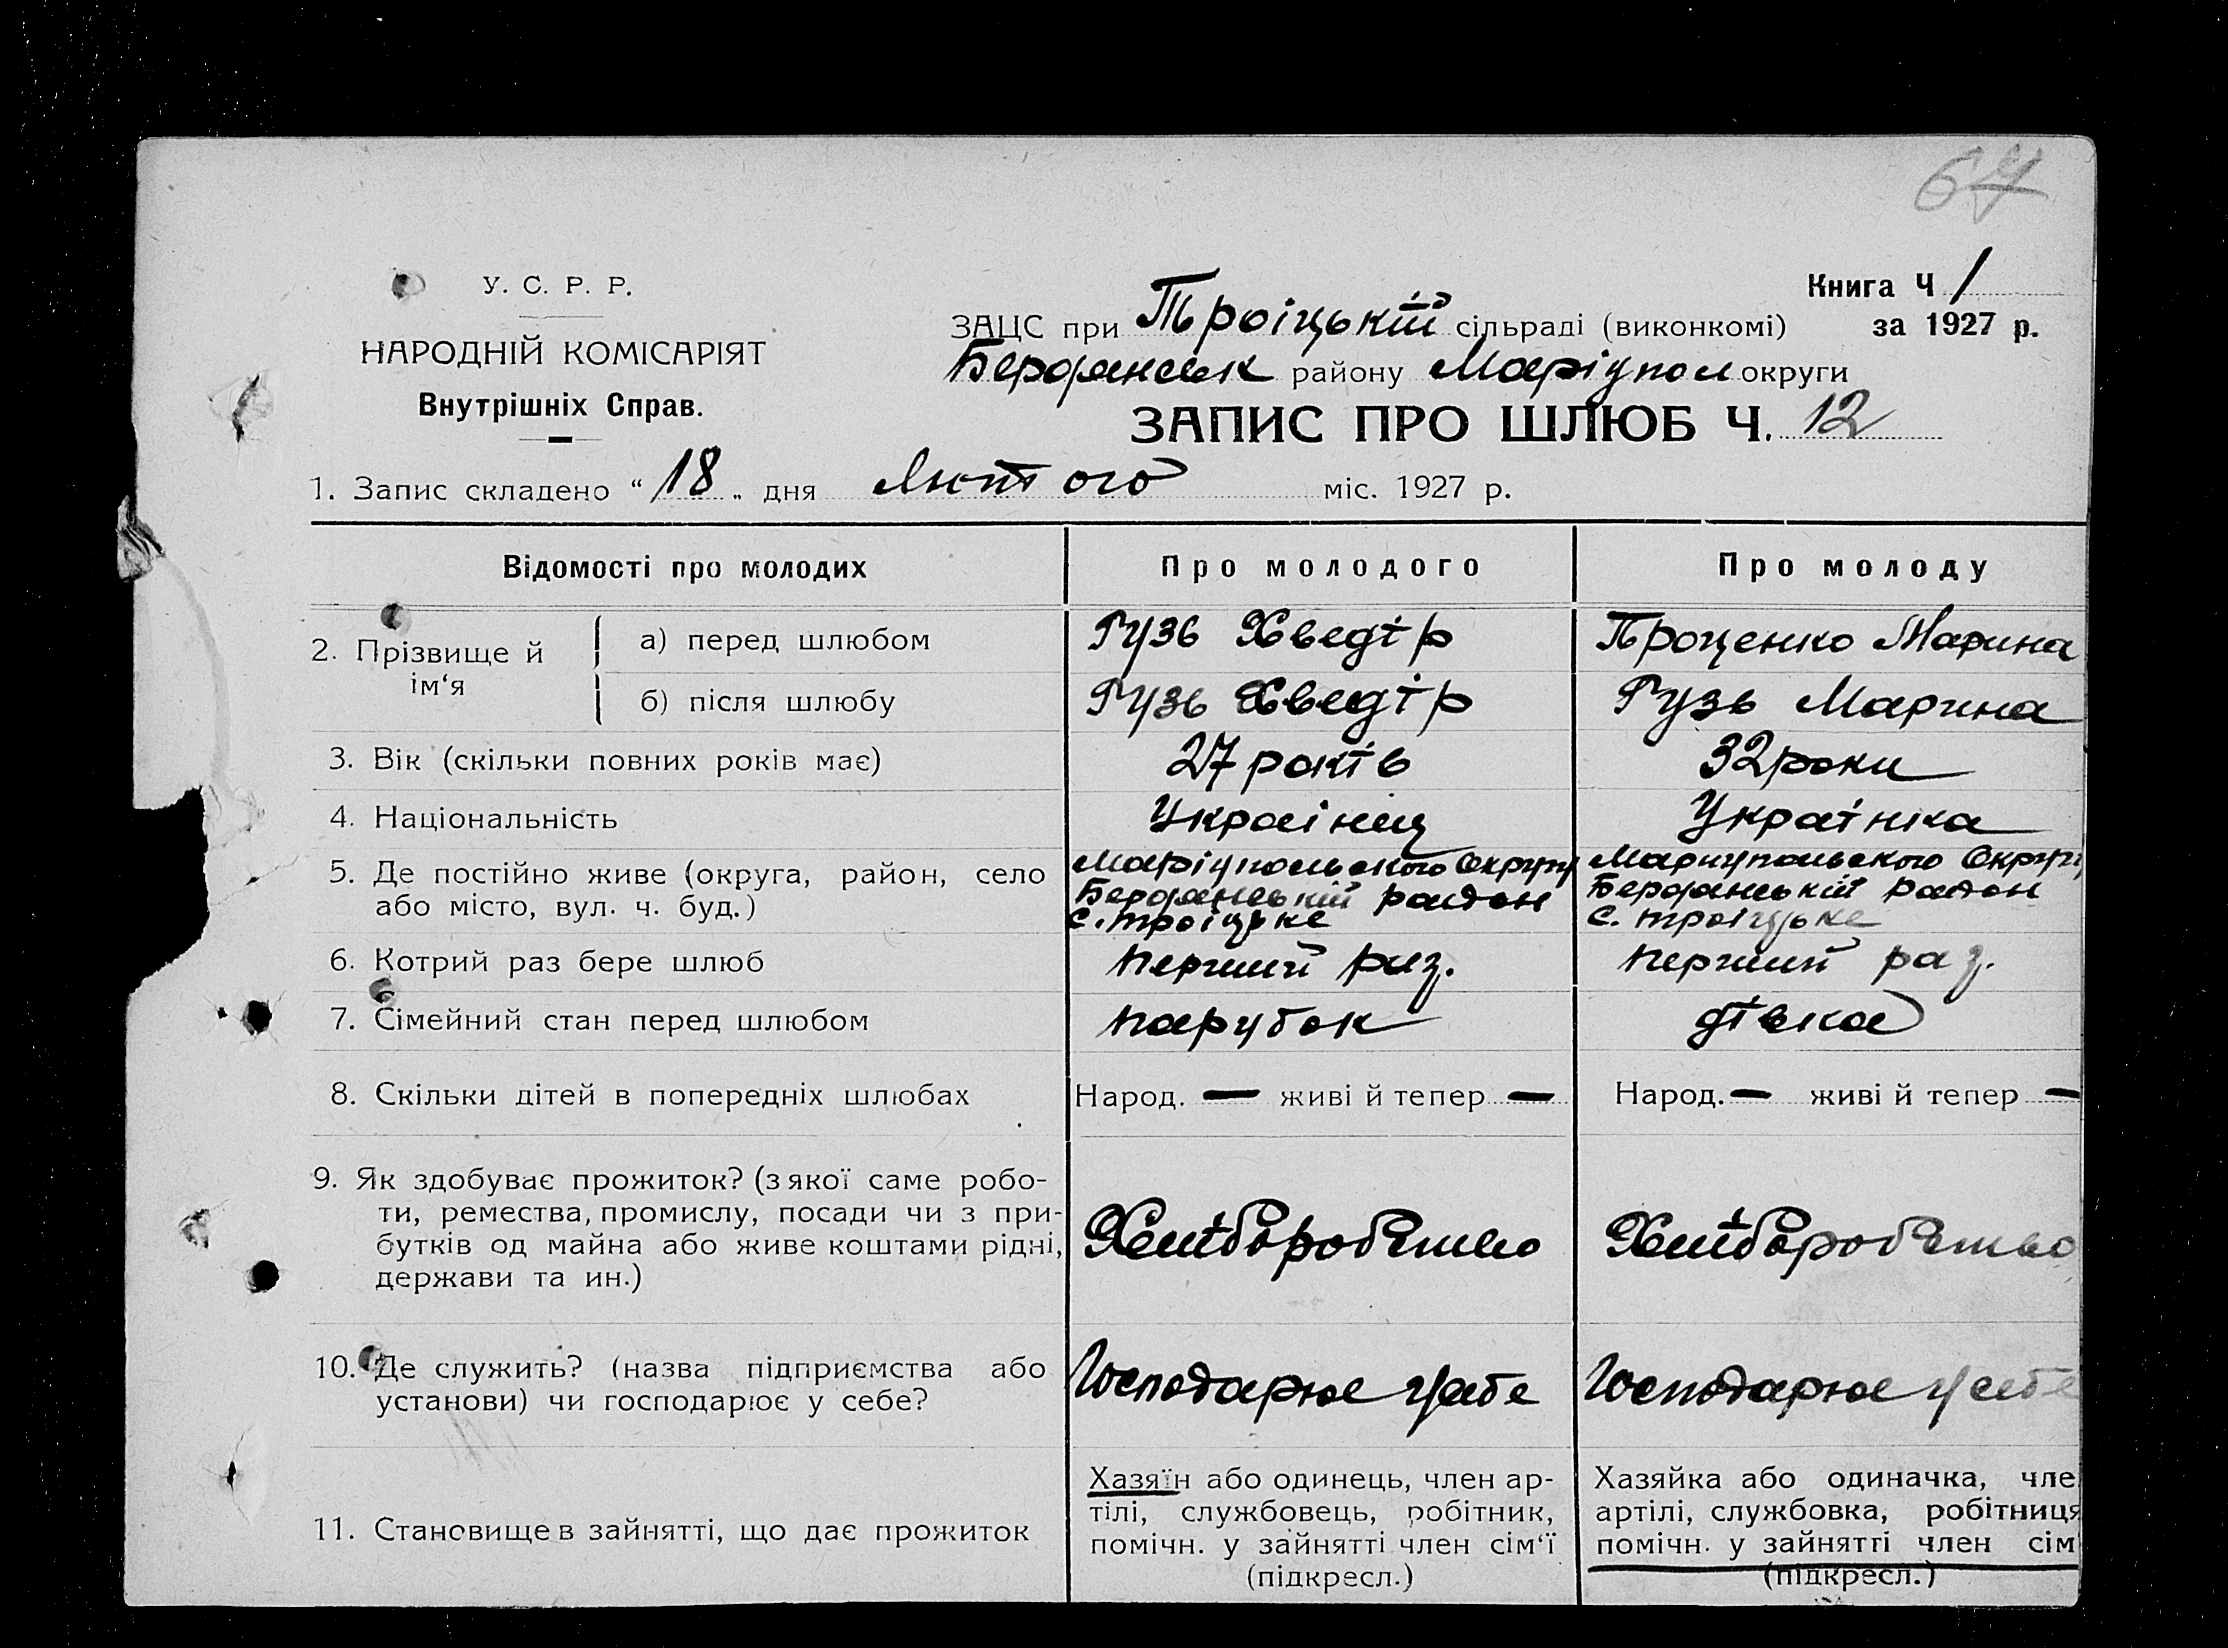 67
У. С. Р. Р.
НАРОДНІЙ КОМІСАРІЯТ
Внутрішніх Справ.
Книга Ч 1
за 1927 р.
ЗАЦС при Троіцькій сільраді (виконкомі)
Бердянськ району Маріупол округи
ЗАПИС ПРО ШЛЮБ Ч. 12
1. Запис складено “ 18 „ дня Лютого міс. 1927 р.
Відомості про молодих
Про молодого
Про молоду
2. Прізвище й ім‘я
а) перед шлюбом
Гузь Хведір
Проценко Марина
б) після шлюбу
Гузь Хведір
Гузь Марина
3. Вік (скільки повних років має)
27 років
32 роки
4. Національність
Украінец
Украінка
5. Де постійно живе (округа, район, село
або місто, вул. ч. буд.)
Маріупольского Округу
Бердянській район
с. Троіцьке
Мариупольского Округу
Бердянській район
с. Троіцьке
6. Котрий раз бере шлюб
перший раз.
перший раз.
7. Сімейний стан перед шлюбом
парубок
дівка
8. Скільки дітей в попередніх шлюбах
Народ. — живі й тепер —
Народ. — живі й тепер —
9. Як здобуває прожиток? (з якої саме робо-
ти, ремества, промислу, посади чи з при-
бутків од майна або живе коштами рідні,
держави та ин.)
Хлібороб'ство
Хлібороб'ство
10. Де служить? (назва підприємства або
установи) чи господарює у себе?
Господарює у себе
Господарює у себе
11. Становище в зайнятті, що дає прожиток
Хазяїн або одинець, член ар-
тілі, службовець, робітник,
помічн. у зайнятті член сім‘ї
(підкресл.)
Хазяйка або одиначка, чле
артілі, службовка, робітниця
помічн. у зайнятті член сім
(підкресл.)